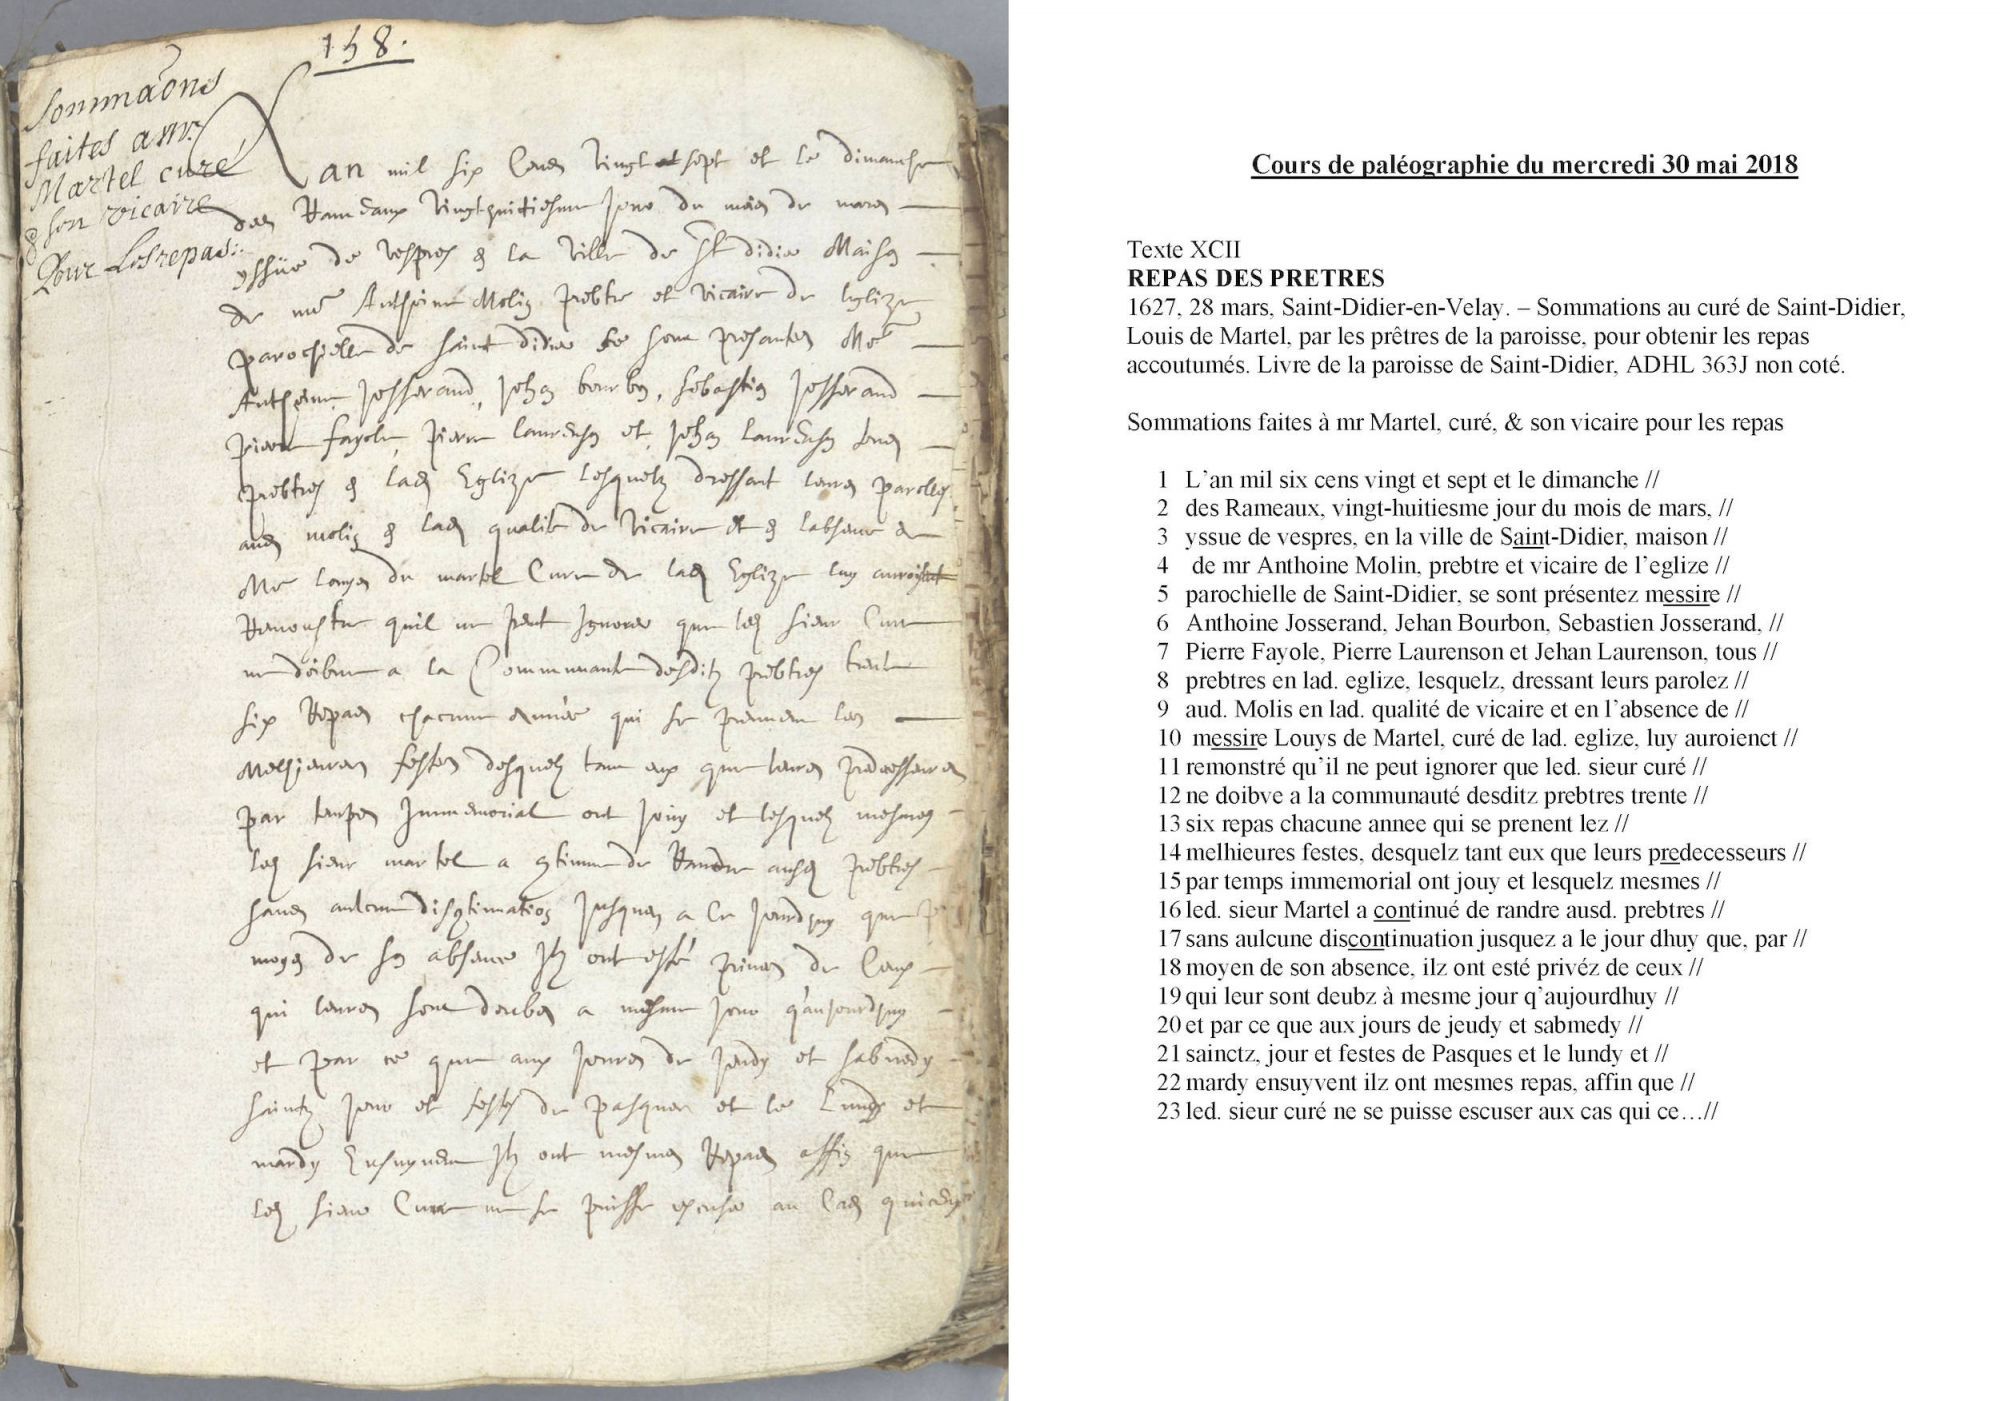 158.
Sommaons
faites a mr
Martel curé
& son vicaire
Pour Les repas
Lan mil six Cens vingt et sept et le dimanche
des Rameaux vingthuictiesme jour du mois de mars
yssüe de vespres en la ville de St didier Maison
de mre Anthoine Molin prebtre et vicaire de leglize
parochielle de Saint didier se sont presantez Mre
Anthoine Josserand, Jehan bourbon, Sebastien Josserand
pierre fayole, pierre laurenson et Jehan laurenson tous
prebtres en lad Eglize lesquelz dressant leurs parolles
aud molin en lad qualité de vicaire et en labsence de
Mre louys de martel Curé de lad Eglize luy auroient
Remonstré quil ne peut Ignorer que led sieur Curé
ne doibve a la Communauté desditz prebtres trente
six Repas chacune année qui se prenent les
Melhieures festes desquelz tant eux que leurs predecesseurs
par temps Immemorial ont jouy et lesquelz mesmes
led sieur martel a continué de Randre ausd prebtres
sans aulcune discontinuation jusques a Ce jourdhuy que
moyen de son absence Ilz ont esté privés de Ceux
qui leurs sont deubz a mesme jour q'aujourdhuy
et par ce que aux jours de jeudy et sabmedy
saintz jour et festes de pasques et le Lundy et
mardy Ensuyvent Ilz ont mesmes Repas affin que
led sieur Curé ne se puisse escuser au Cas qui
Cours de paléographie du mercredi 30 mai 2018
Texte XCII
REPAS DES PRETRES
1627, 28 mars, Saint-Didier-en-Velay. – Sommations au curé de Saint-Didier,
Louis de Martel, par les prêtres de la paroisse, pour obtenir les repas
accoutumés. Livre de la paroisse de Saint-Didier, ADHL 363J non coté.
Sommations faites à mr Martel, curé, & son vicaire pour les repas
1 L’an mil six cens vingt et sept et le dimanche //
2 des Rameaux, vingt-huitiesme jour du mois de mars, //
3 yssue de vespres, en la ville de Saint-Didier, maison //
4 de mr Anthoine Molin, prebtre et vicaire de l’eglize //
5 parochielle de Saint-Didier, se sont présentez messire //
6 Anthoine Josserand, Jehan Bourbon, Sebastien Josserand, //
7 Pierre Fayole, Pierre Laurenson et Jehan Laurenson, tous //
8 prebtres en lad. eglize, lesquelz, dressant leurs parolez //
9 aud. Molis en lad. qualité de vicaire et en l’absence de //
10 messire Louys de Martel, curé de lad. eglize, luy auroienct //
11 remonstré qu’il ne peut ignorer que led. sieur curé //
12 ne doibve a la communauté desditz prebtres trente //
13 six repas chacune annee qui se prenent lez //
14 melhieures festes, desquelz tant eux que leurs predecesseurs //
15 par temps immemorial ont jouy et lesquelz mesmes //
16 led. sieur Martel a continué de randre ausd. prebtres //
17 sans aulcune discontinuation jusquez a le jour dhuy que, par //
18 moyen de son absence, ilz ont esté privéz de ceux //
19 qui leur sont deubz à mesme jour q’aujourdhuy //
20 et par ce que aux jours de jeudy et sabmedy //
21 sainctz, jour et festes de Pasques et le lundy et //
22 mardy ensuyvent ilz ont mesmes repas, affin que //
23 led. sieur curé ne se puisse escuser aux cas qui ce…//